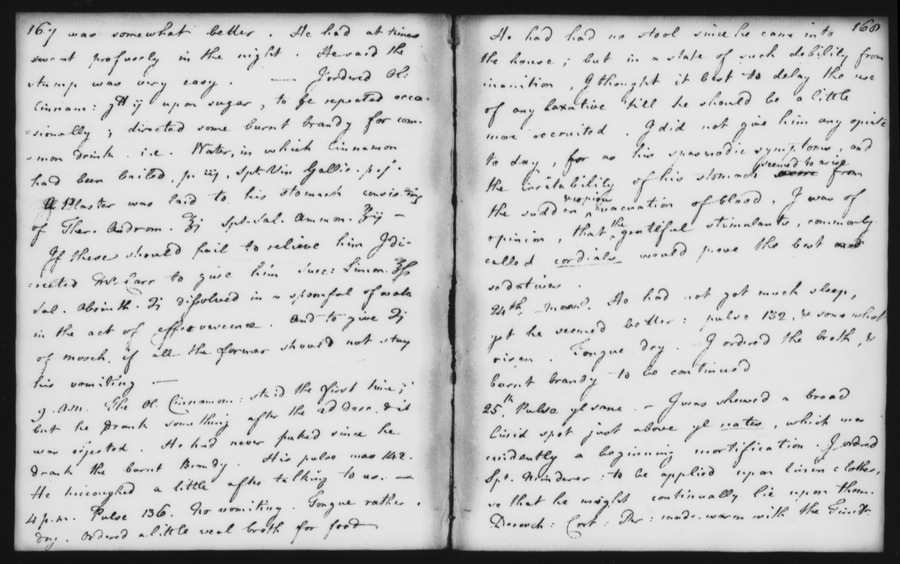 167 was somewhat better. He had at times
sweat profusely in the night. He said the
stump was very easy. — I ordered Ol:
Cinnam: gtt ij upon sugar, to be repeated occa-
-sionally; directed some burnt brandy for com-
-mon drink. i.e. Water, in which Cinnamon
had been boiled, p. iij, Spt. Vin Gallic. p. j.
A Plaster was laid to his stomach consisting
of Ther. Androm. ℥j Spt. Sal. Ammon. ʒij —
If these should fail to relieve him I di-
-rected Mr. Carr to give him Succ: Limon. ℥ss
Sal. Absinth. ℈j dissolved in a spoonful of water
in the act of effervescence. And to give ℈j
of mosch. if all the former should not stay
his vomiting —
9. A.M. The Ol. Cinnamom: staid the first time;
but he drank something after the 2d dose, & it
was ejected. He had never puked since he
drank the burnt Brandy. His pulse was 142.
He hiccoughed a little after talking to us. —
4 p.m. Pulse 136. No vomiting. Tongue rather
dry. Ordered a little veal broth for food —
168
He had had no stool since he came into
the house; but in a state of such debility from
inanition, I thought it best to delay the use
of any laxative till he should be a little
more recruited. I did not give him any opiate
to day, for as his spasmodic symptoms, and
the irritability of his stomach seemed to arise from
the sudden & copious evacuation of blood, I was of
opinion, that the grateful stimulants, commonly
called cordials would prove the best
sedatives.
24th. Morng. He had not got much sleep,
yet he seemed better: pulse 132, & somewhat
risen. Tongue dry. I ordered the broth, &
burnt brandy to be continued
25th. Pulse ye same. — I was shewed a broad
livid spot just above ye nates, which was
evidently a beginning mortification. I ordred
Spt. Minderer: to be applied upon linen clothes,
so that he might continually lie upon them.
Decoch: Cort: Per: made warm with the Tinct: